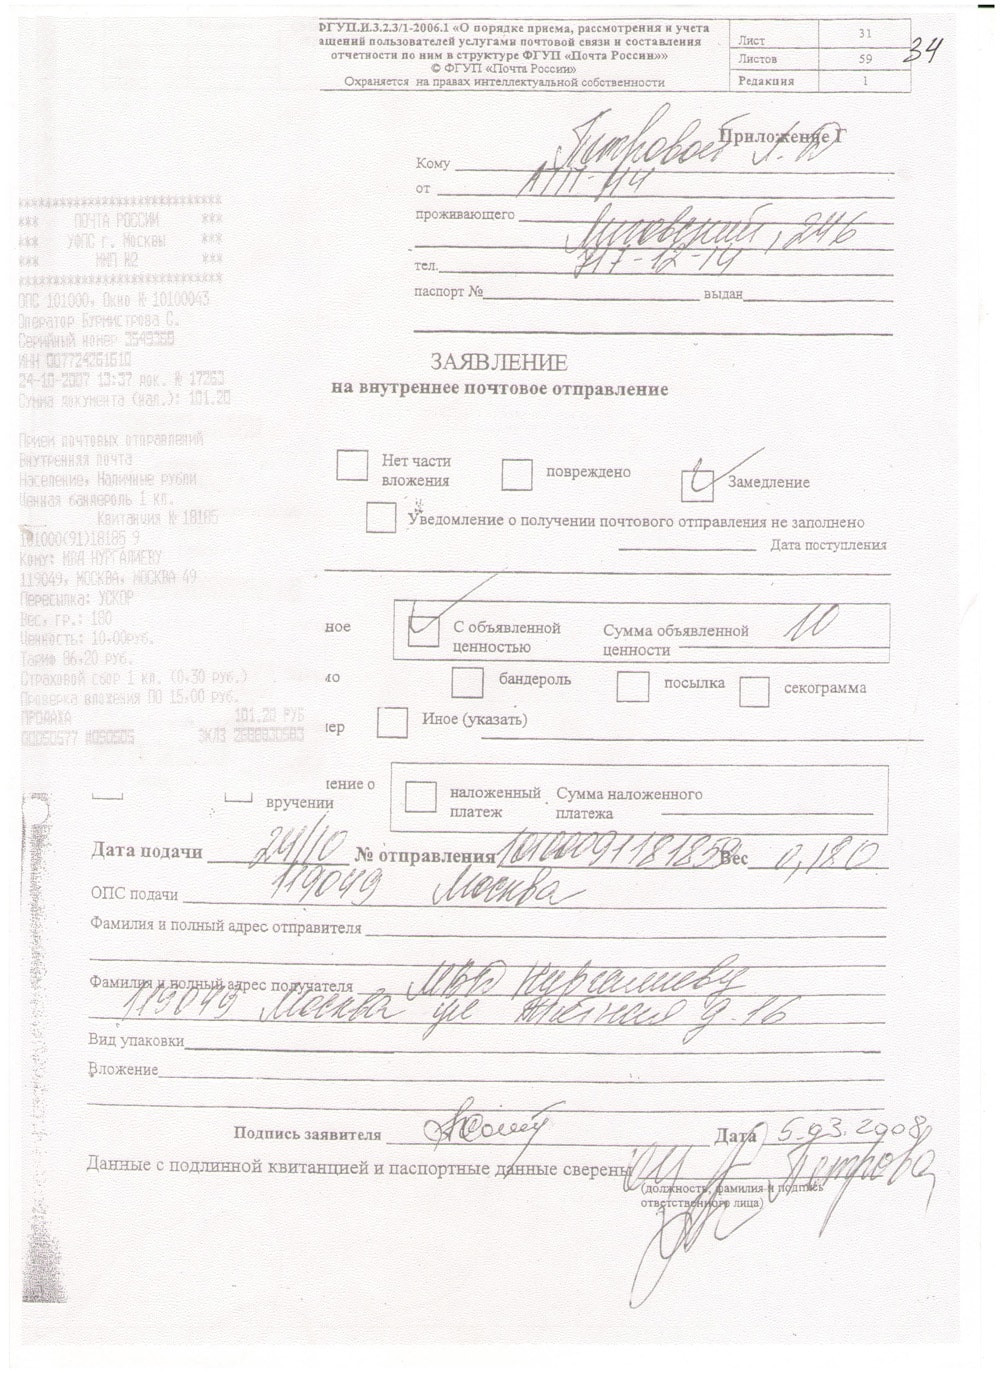 ФГУП.И.3.2.3/1-2006.1 «О порядке приема, рассмотрения и учета
ащений пользователей услугами почтовой связи и составления
отчетности по ним в структуре ФГУП «Почта России»»
© ФГУП «Почта России»
Охраняется на правах интеллектуальной собственности
Лист 31
Листов 59
Редакция 1
34
Приложение Г
Кому Петровой
от АТП-44
проживающего
Лиговский, 246
тел. 717-12-14
паспорт № выдан
ЗАЯВЛЕНИЕ
на внутреннее почтовое отправление
*** ПОЧТА РОССИИ ***
*** УФПС г. Москвы ***
*** ММП №2 ***
ОПС 101000, Окно № 10100043
Оператор Бурмистрова С.
Серийный номер 3549358
ИНН 007724261610
24-10-2007 13:37 док. № 17263
Сумма документа (нал.): 101.20
Прием почтовых отправлений
Внутренняя почта
Население, Наличные рубли
Ценная бандероль 1 кл.
Квитанция № 18185
101000(91)18185 9
Кому: МВД НУРГАЛИЕВУ
119049, МОСКВА, МОСКВА 49
Пересылка: УСКОР
Вес, гр.: 180
Ценность: 10.00руб.
Тариф 86,20 руб.
Страховой сбор 1 кл. (0.30 руб.)
Проверка вложения ПО 15,00 руб.
ПРОДАЖА 101.20 РУБ
Нет части
вложения
повреждено
Замедление
Уведомление о получении почтового отправления не заполнено
Дата поступления
ное
С объявленной
ценностью
Сумма объявленной
ценности 10
бандероль
посылка
секограмма
Иное (указать)
ение о
вручении
наложенный
платеж
Сумма наложенного
платежа
Дата подачи 24/10 № отправления 10100091181859 Вес 0,180
ОПС подачи 119049 Москва
Фамилия и полный адрес отправителя
Фамилия и полный адрес получателя МВД Нургалиеву
119049 Москва ул Житная д. 16
Вид упаковки
Вложение
Подпись заявителя Дата 5.03.2008
Данные с подлинной квитанцией и паспортные данные сверены Петрова
(должность, фамилия и подпись
ответственного лица)